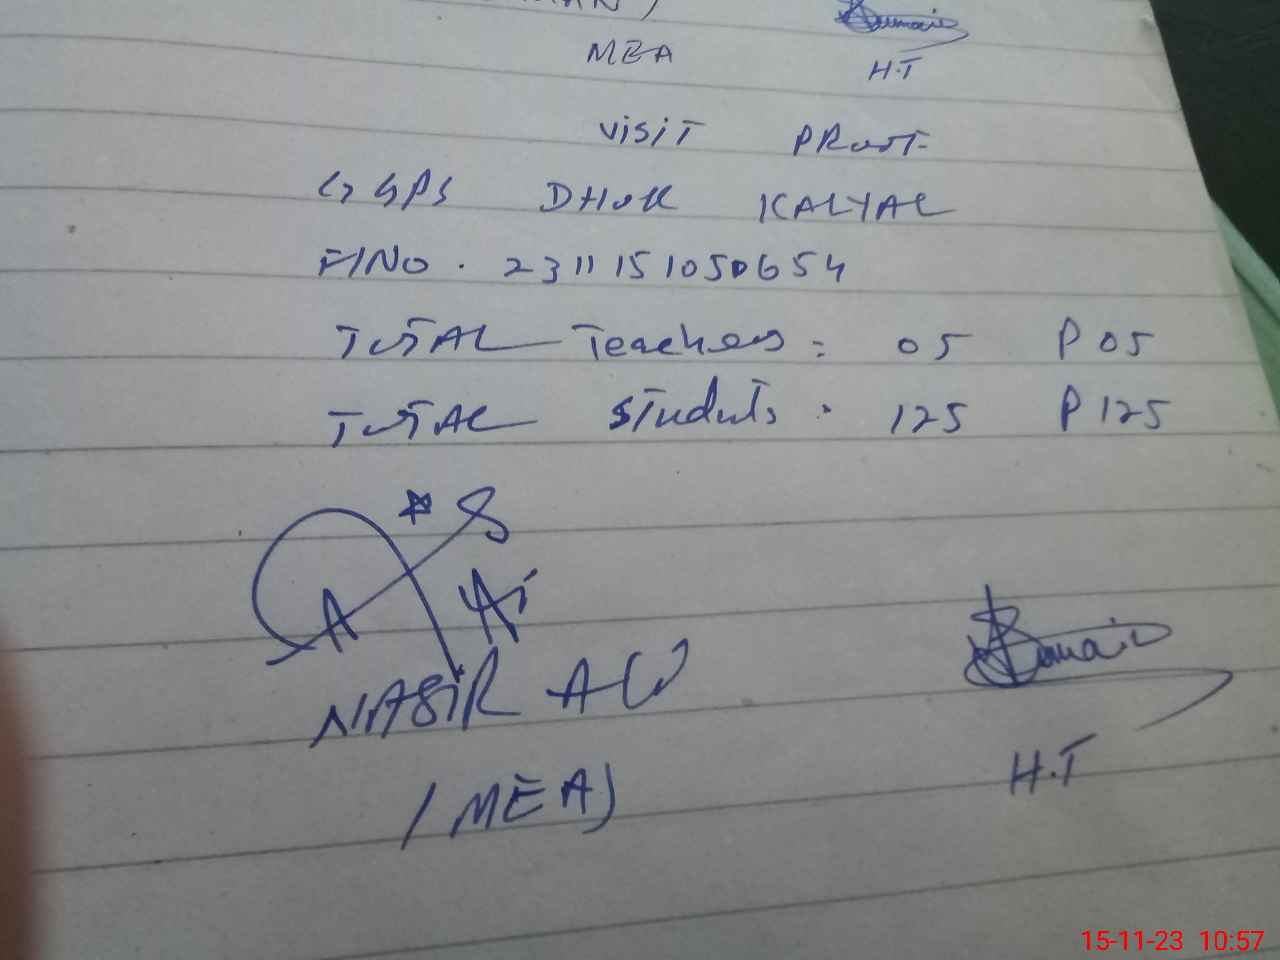 MEA H.T
VISIT PROOF
GGPS DHOK KALYAL
F/NO. 2311151050654
TOTAL Teachers: 05 P 05
TOTAL Students: 125 P 125
NASIR ALI
(MEA) H.T
15-11-23 10:57